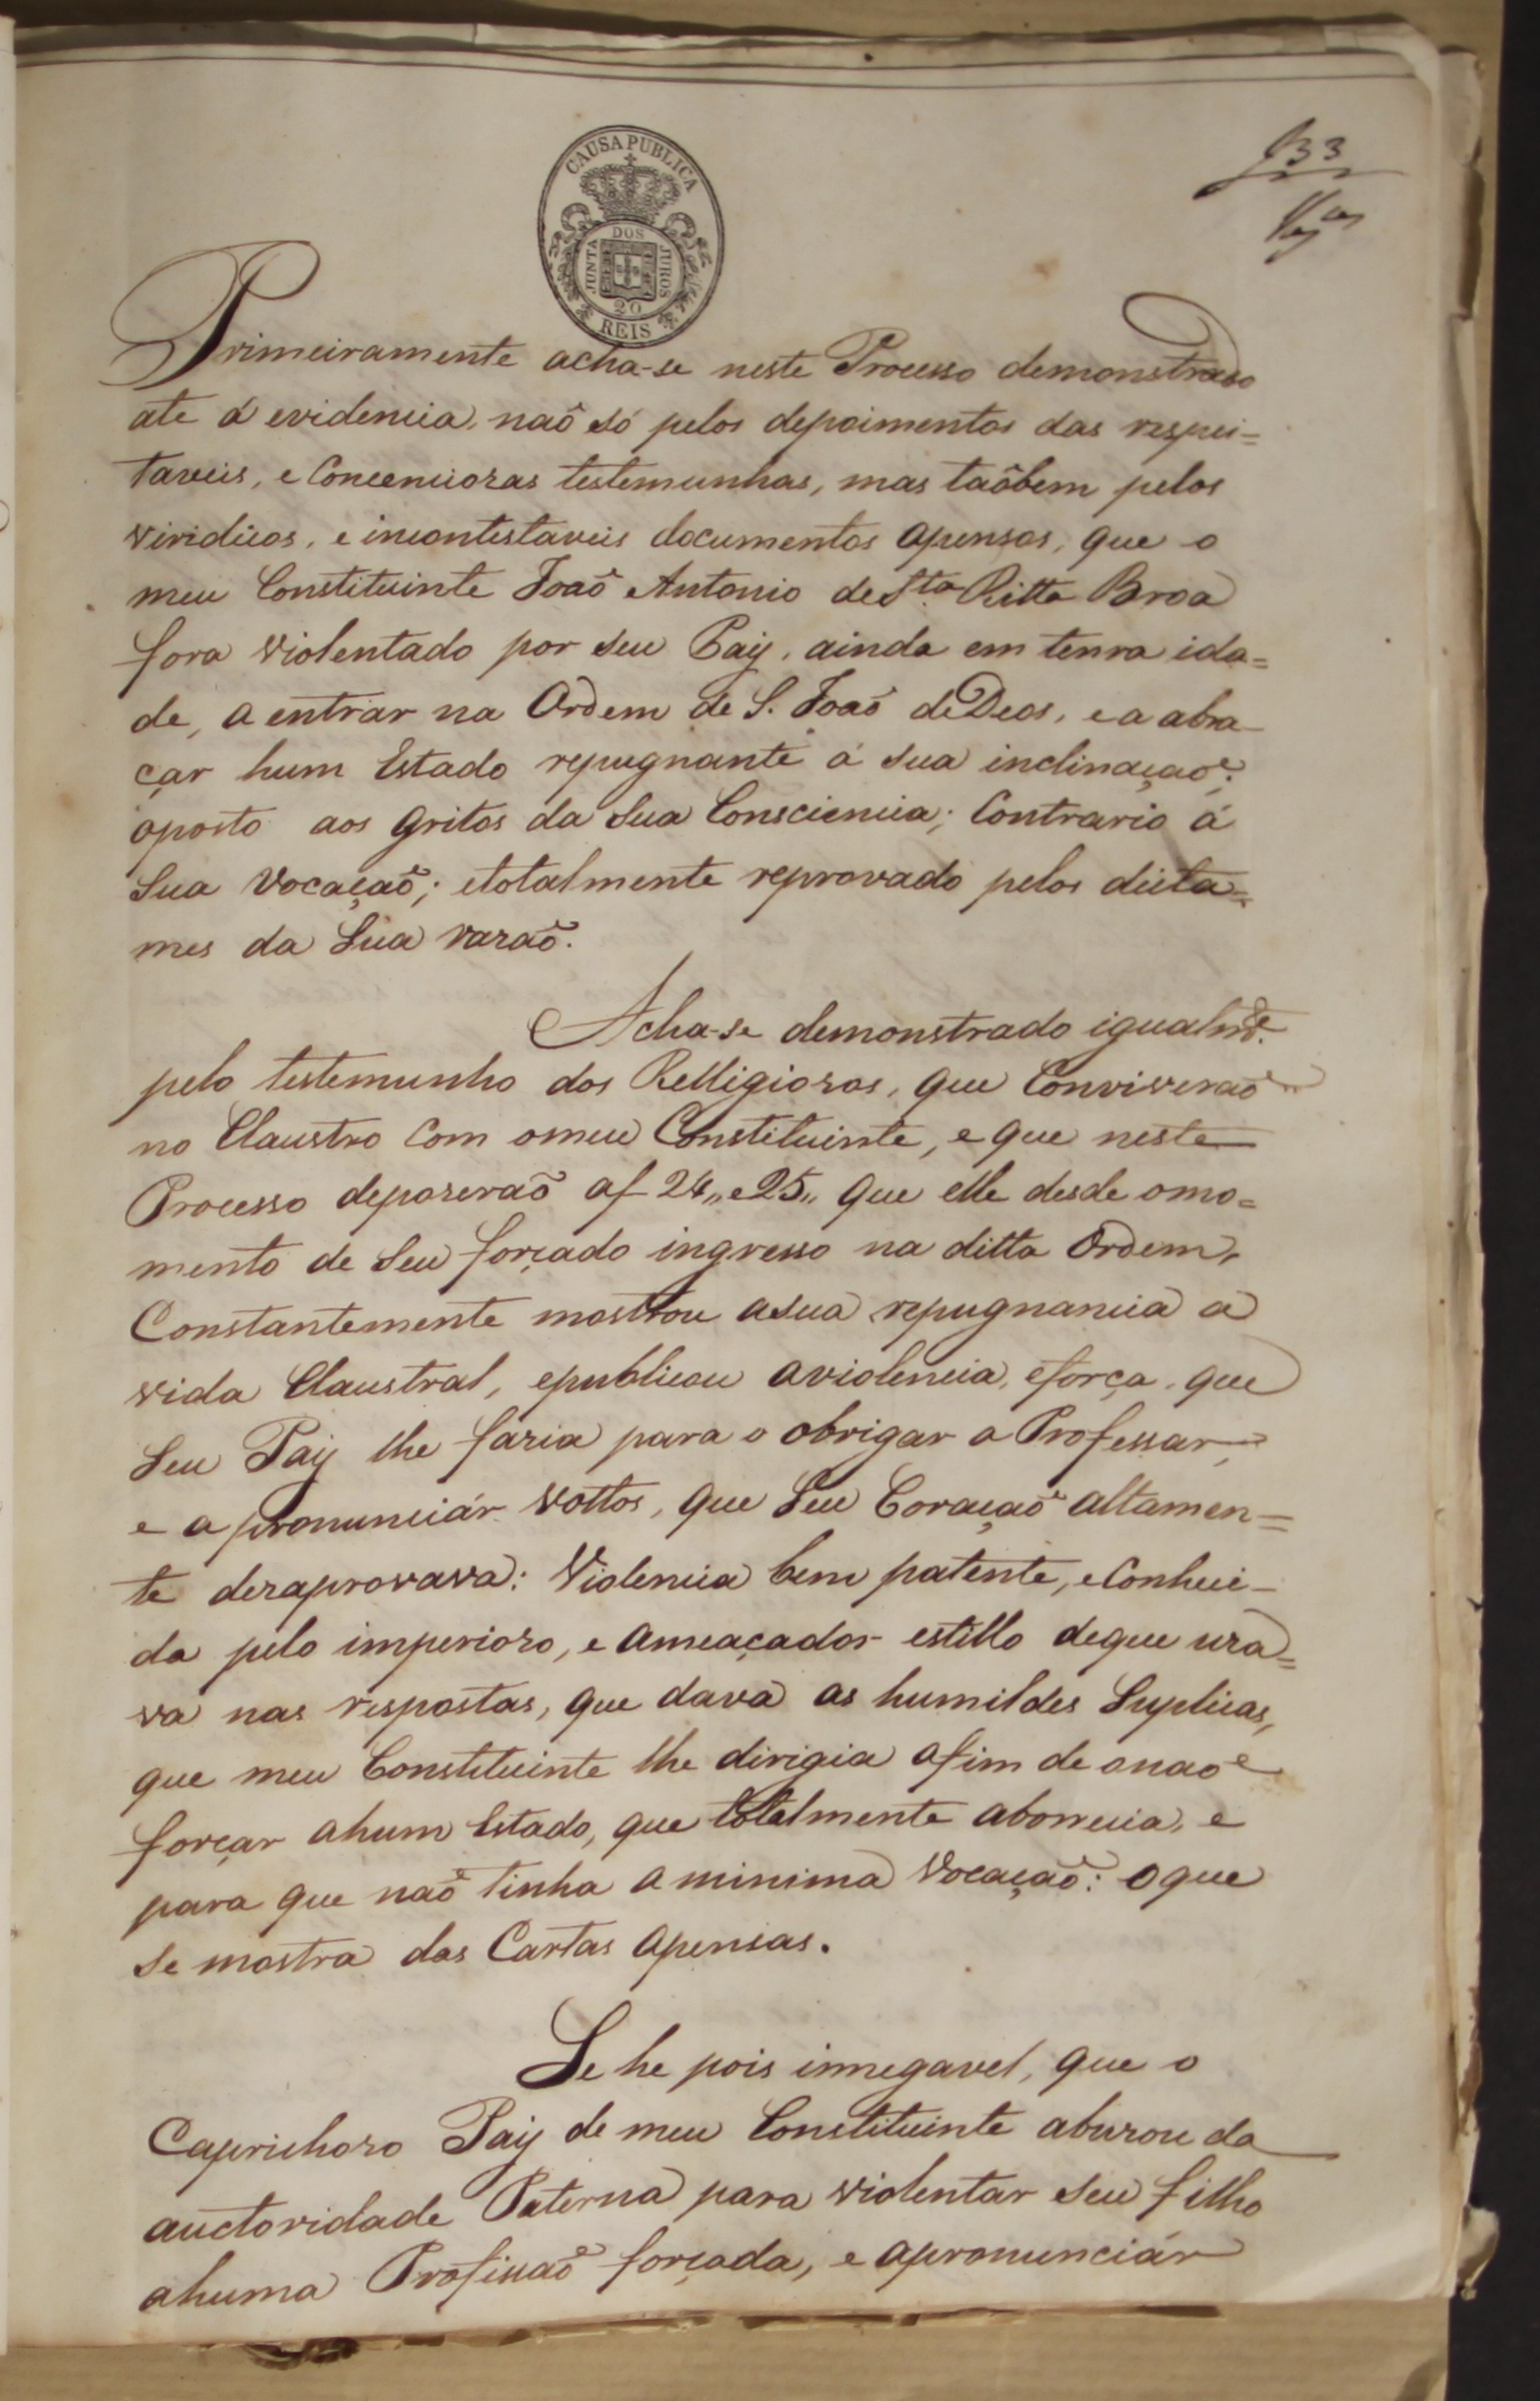 CAUSA PUBLICA
JUNTA DOS JUROS
20
REIS
f 33
Primeiramente acha-se neste Processo demonstrado
ate á evidencia, naõ só pelos depoimentos das respei=
taveis, e Concenciozas testemunhas, mas taõbem pelos
viridicos, e incontestaveis documentos apensos, que o
meu Constituinte Joaõ Antonio de Sta. Ritta Broa
fora violentado por seu Pay, ainda em tenra ida=
de, a entrar na Ordem de S. Joaõ de Deos, e a abra-
çar hum Estado repugnante á sua inclinaçaõ;
oposto aos gritos da sua Consciencia; Contrario á
sua vocaçaõ; etotalmente reprovado pelos dicta=
mes da sua razaõ.
Acha-se demonstrado igualmte.
pelo testemunho dos Relligiozos, que Conviveraõ
no Claustro Com omeu Constituinte, e que neste
Processo depozeraõ af 24,, e25,, que elle desde omo=
mento de seu forçado ingresso na ditta Ordem,
Constantemente mostrou asua repugnancia a
vida Claustral, epublicou aviolencia, eforça, que
seu Pay lhe fazia para o obrigar a Professar,
e a pronunciár vottos, que seu Coraçaõ altamen=
te dezaprovava: Violencia bem patente, e Conheci-
da pelo imperiozo, e ameaçador estillo deque uza=
va nas respostas, que dava as humildes suplicas,
que meu Constituinte lhe dirigia afim de onaõ
forçar ahum Estado, que totalmente aborrecia, e
para que naõ tinha a minima vocaçaõ: oque
se mostra das Cartas apensas.
Se he pois innegavel, que o
Caprichozo Pay de meu Constituinte abuzou da
auctoridade Paterna para violentar seu filho
ahuma Profissaõ forçada, e apronunciár